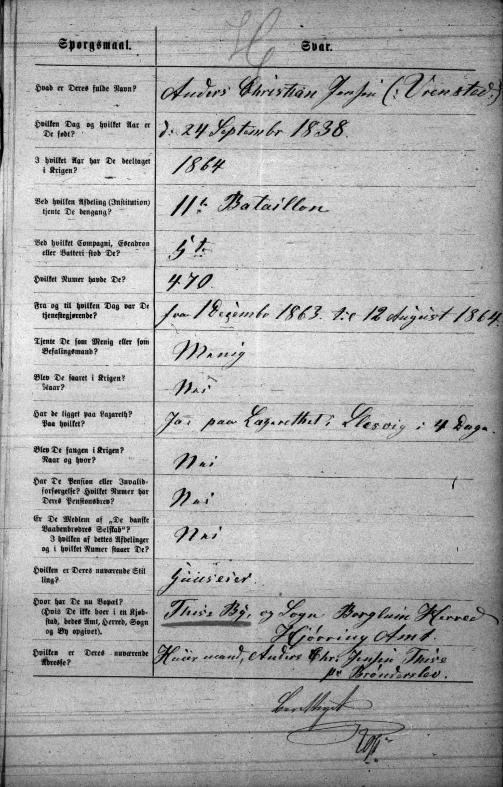 H
Spørgsmaal. Svar.
Hvad er Deres fulde Navn? Anders Christian Jensen (: Vrensted:)
Hvilken Dag og hvilket Aar er
De født? d: 24 Septembr 1838.
I hvilket Aar har De deeltaget
i Krigen? 1864
Ved hvilken Afdeling (Institution)
tjente De dengang? 11te Bataillon
Ved hvilket Compagni, Escadron
eller Batteri stod De? 5te
Hvilket Numer havde De? 470.
Fra og til hvilken Dag var De
tjenestegjørende? fra 1 Decembr 1863. til 12 August 1864.
Tjente De som Menig eller som
Befalingsmand? Menig
Blev De saaret i Krigen?
Naar? Nei
Har De ligget paa Lazareth?
Paa hvilket? Ja: paa Lazarethet i Slesvig i 4 Dage.
Blev De fangen i Krigen?
Naar og hvor? Nei
Har De Pension eller Invalid-
forsørgelse? Hvilket Numer har
Deres Pensionsbrev? Nei
Er De Medlem af „De danske
Vaabenbrødres Selskab“?
I hvilken af dettes Afdelinger
og i hvilket Numer staaer De? Nei
Hvilken er Deres nuværende Stil-
ling? Huuseier.
Hvor har De nu Bopæl?
(Hvis De ikke boer i en Kjøb-
stad, bedes Amt, Herred, Sogn
og By opgivet). Thise By, og Sogn Borglum Herred
Hjørring Amt.
Hvilken er Deres nuværende
Adresse? Huusmand, Anders Chr. Jensen Thise
pr Brønderslev.